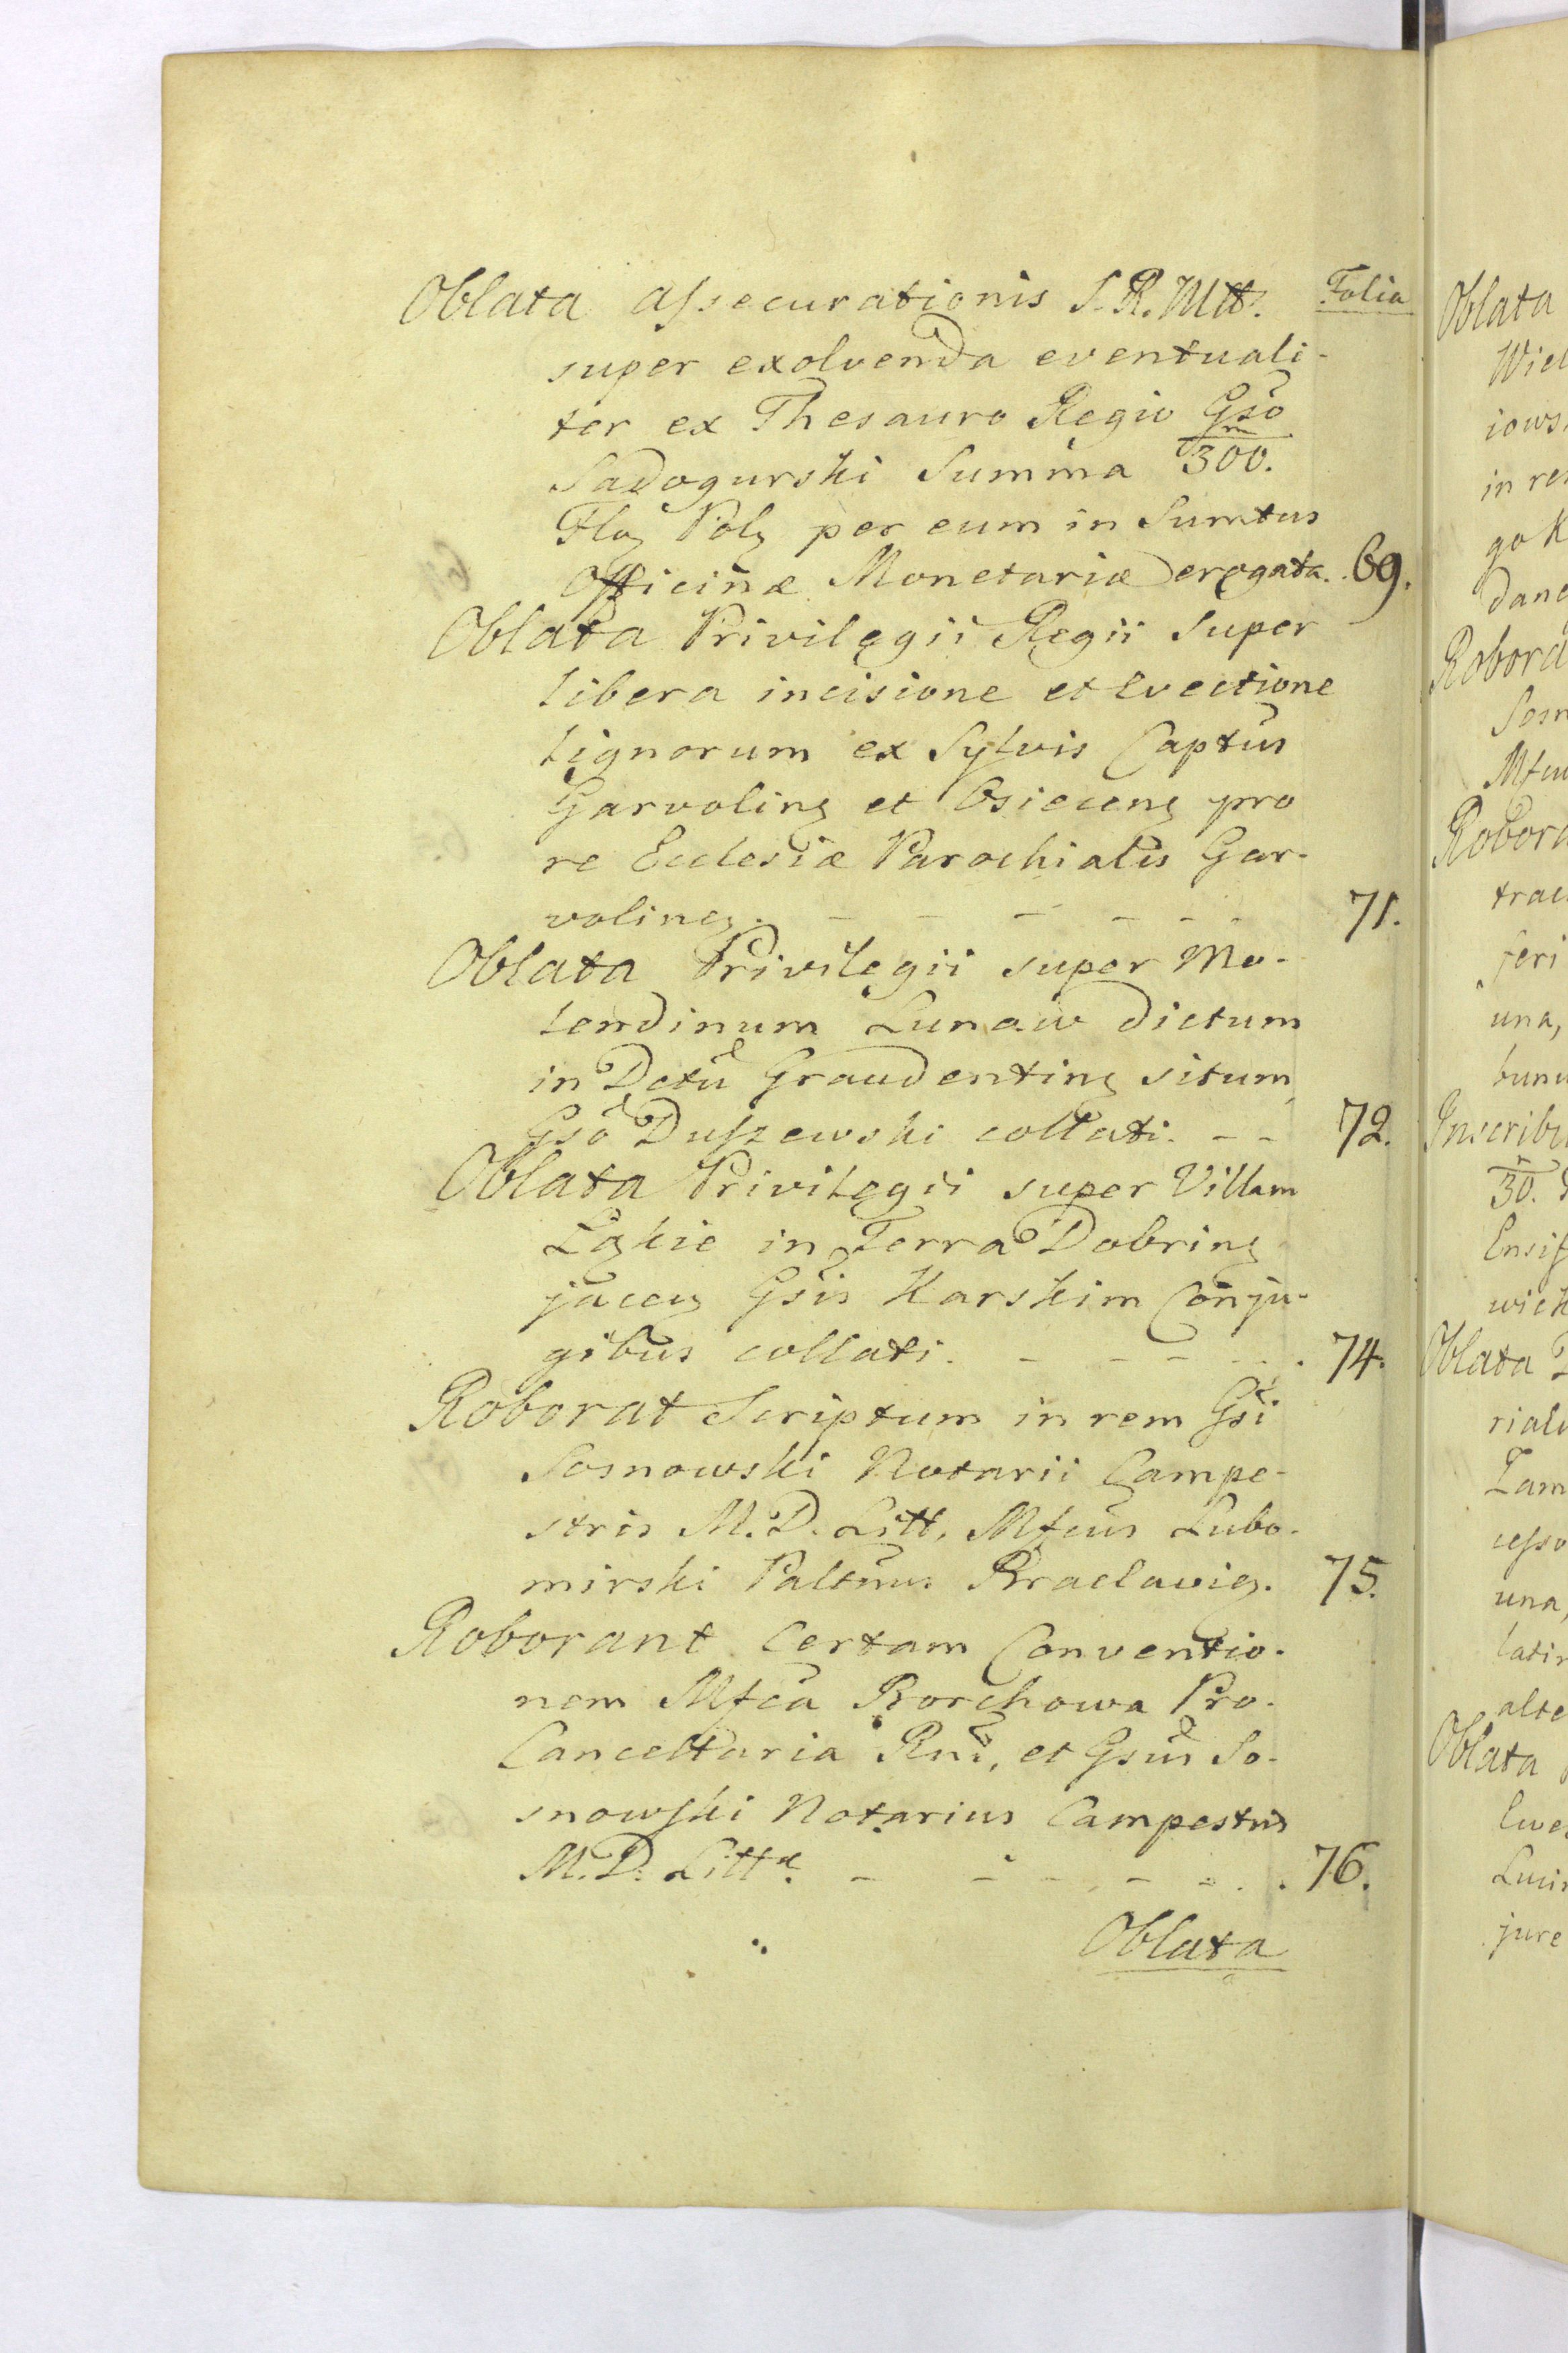 Folia
Oblata assecurationis S. R. Mtt.
super exolvenda eventuali-
ter ex Thesauro Regio Gso
Sadogurski Summa 300.
Flor Pol per eum in Sumtus
Officinæ Monetariæ erogata. 69.
Oblata Privilegii Regii super
libera incisione et Evectione
lignorum ex Sylvis Captus
Garvolinen et Osiecen pro
re Ecclesiæ Parochialis Gar-
volinen. - - - - - - 71.
Oblata Privilegii super Mo-
lendinum Lunaw dictum
in Dctu Graudentinen situm
Gso Duszewski collati. - - 72.
Oblata Privilegii super Villam
Łąkie in Terra Dobrinen
jacen Gsis Karskim Conju-
gibus collati. - - - - 74.
Roborat Scriptum in rem Gsi
Sosnowski Notarii Campe-
stris M. D. Litt. Mfcus Lubo-
mirski Paltnus Braclavien. 75.
Roborant Certam Conventio-
nem Mfca Borchowa Pro-
Cancellaria Rni, et Gsus So-
snowski Notarius Campestris
M. D. Littæ. - - - - - 76.
Oblata
Oblata
Wiel
iows
in re
go K
dane
Robora
Sosn
Mfcu
Robora
trac
feri
una,
bunu
Inscribi
30.
Ensif
wick
Oblata
riali
Zam
cesso
una,
latin
alte
Oblata
Lucin
jure